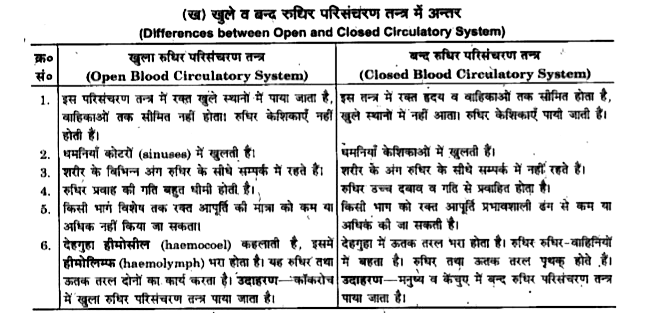 (ख) खुले व बन्द रुधिर परिसंचरण तन्त्र में अन्तर
(Differences between Open and Closed Circulatory System)
क्र० सं०
खुला रुधिर परिसंचरण तन्त्र
(Open Blood Circulatory System)
बन्द रुधिर परिसंचरण तन्त्र
(Closed Blood Circulatory System)
1. इस परिसंचरण तन्त्र में रक्त खुले स्थानों में पाया जाता है,
वाहिकाओं तक सीमित नहीं होता। रुधिर केशिकाएँ नहीं
होती हैं।
इस तन्त्र में रक्त हृदय व वाहिकाओं तक सीमित होता है,
खुले स्थानों में नहीं आता। रुधिर केशिकाएँ पायी जाती हैं।
2. धमनियाँ कोटरों (sinuses) में खुलती हैं।
धमनियाँ केशिकाओं में खुलती हैं।
3. शरीर के विभिन्न अंग रुधिर के सीधे सम्पर्क में रहते हैं।
शरीर के अंग रुधिर के सीधे सम्पर्क में नहीं रहते हैं।
4. रुधिर प्रवाह की गति बहुत धीमी होती है।
रुधिर उच्च दबाव व गति से प्रवाहित होता है।
5. किसी भाग विशेष तक रक्त आपूर्ति की मात्रा को कम या
अधिक नहीं किया जा सकता।
किसी भाग को रक्त आपूर्ति प्रभावशाली ढंग से कम या
अधिक की जा सकती है।
6. देहगुहा हीमोसील (haemocoel) कहलाती है, इसमें
हीमोलिम्फ (haemolymph) भरा होता है। यह रुधिर तथा
ऊतक तरल दोनों का कार्य करता है। उदाहरण—कॉकरोच
में खुला रुधिर परिसंचरण तन्त्र पाया जाता है।
देहगुहा में ऊतक तरल भरा होता है। रुधिर रुधिर-वाहिनियों
में बहता है। रुधिर तथा ऊतक तरल पृथक् होते हैं।
उदाहरण—मनुष्य व केंचुए में बन्द रुधिर परिसंचरण तन्त्र
पाया जाता है।